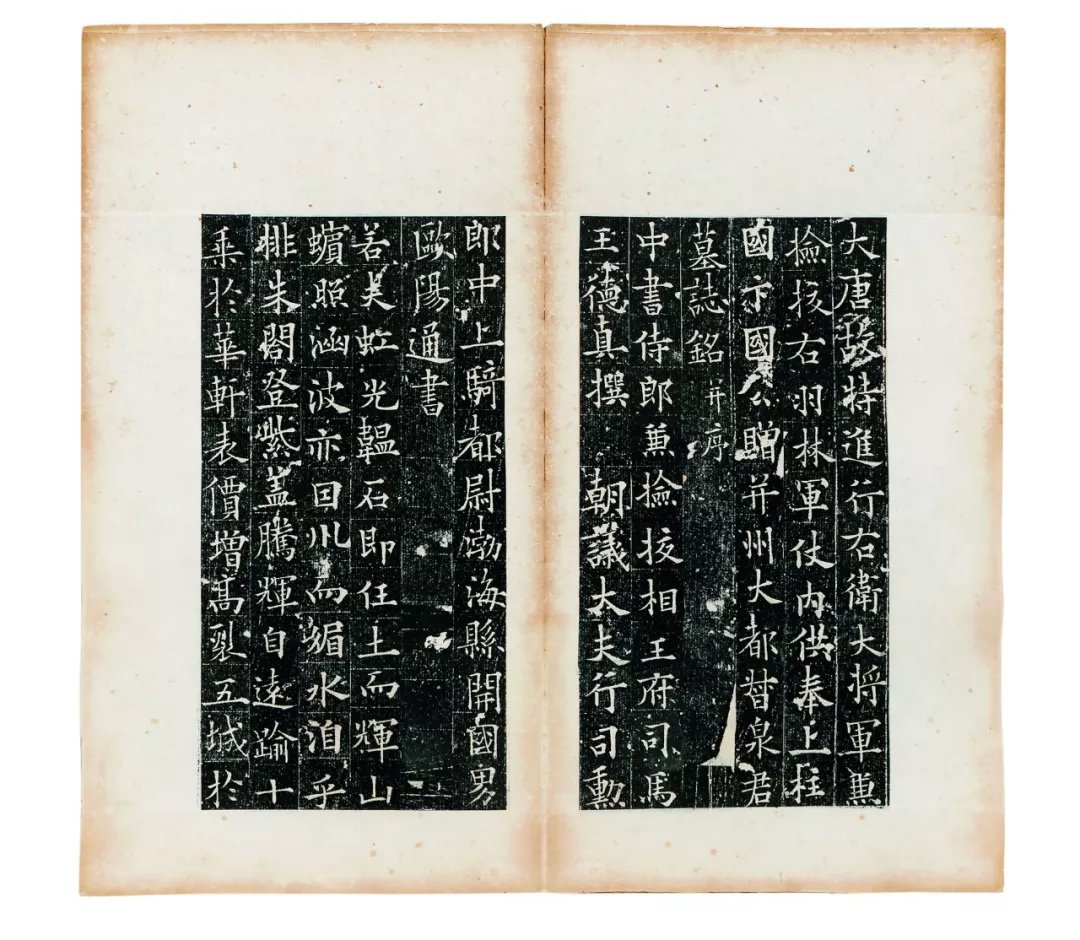 大唐故特進行右衛大將軍兼
撿挍右羽林軍仗內供奉上柱
國卞國公贈并州大都督泉君
墓誌銘并序
中書侍郎兼撿挍相王府司馬
王德真撰 朝議大夫行司勳
郎中上騎都尉渤海縣開國男
歐陽通書
若夫虹光韞石即任土而輝山
蠙照涵波亦因川而媚水洎乎
排朱閣登紫蓋騰輝自遠踰十
乘於華軒表價增高裂五城於